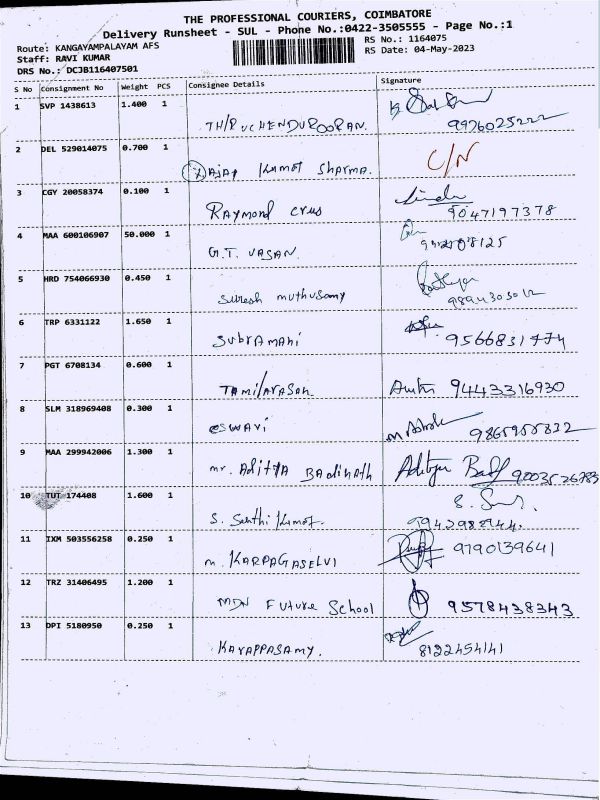 THE PROFESSIONAL COURIERS, COIMBATORE
Delivery Runsheet - SUL - Phone No.:0422-3505555 - Page No.:1
Route: KANGAYAMPALAYAM AFS RS No.: 1164075
Staff: RAVI KUMAR RS Date: 04-May-2023
DRS No.: DCJB116407501
S No Consignment No Weight PCS Consignee Details Signature
1 SVP 1438613 1.400 1
THIRUCHENDUROORAN. 9926025222
2 DEL 529014075 0.700 1 C/N
Ajay Kumar Sharma.
3 CGY 20058374 0.100 1
Raymond crus 9047197378
4 MAA 600106907 50.000 1
G.T. VASAN.
5 HRD 754066930 0.450 1
Suresh muthusamy
6 TRP 6331122 1.650 1
Subramani 9566831774
7 PGT 6708134 0.600 1
Tamilarasan. 9443316930
8 SLM 318969408 0.300 1
eswari
9 MAA 299942006 1.300 1
mr. Aditya Badinath Aditya
10 TUT 174408 1.600 1
S. Senthil Kumar.
11 IXM 503556258 0.250 1
m. KARPAGASELVI 9790139641
12 TRZ 31406495 1.200 1
MDN Future School 9578438343
13 DPI 5180950 0.250 1
Karappasamy. 8122454141